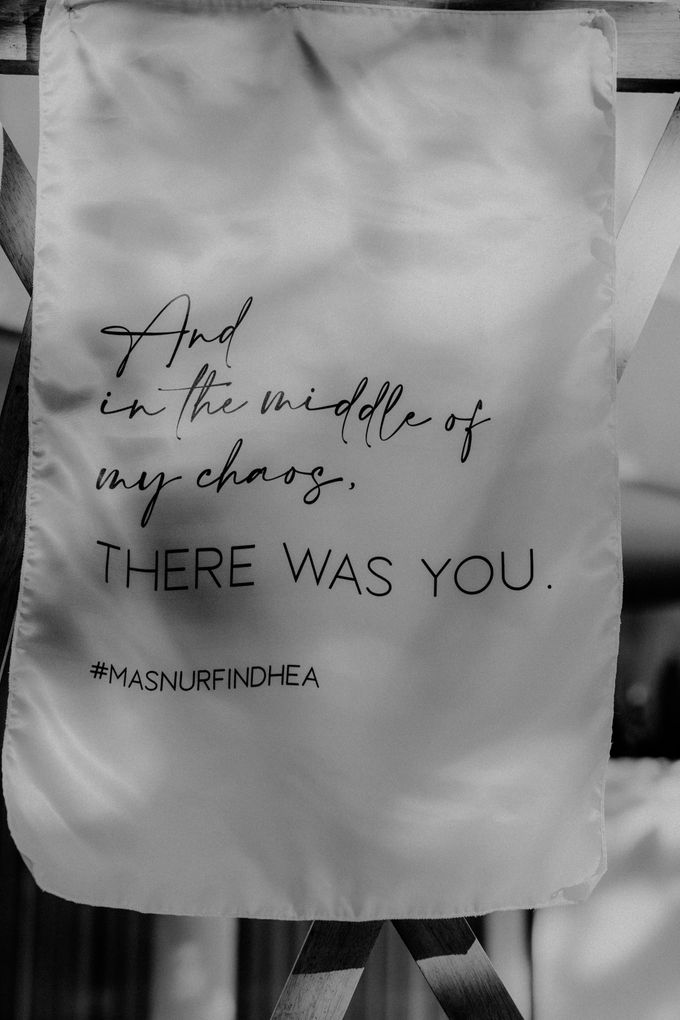 And
in the middle of
my chaos,
THERE WAS YOU.
#MASNURFINDHEA